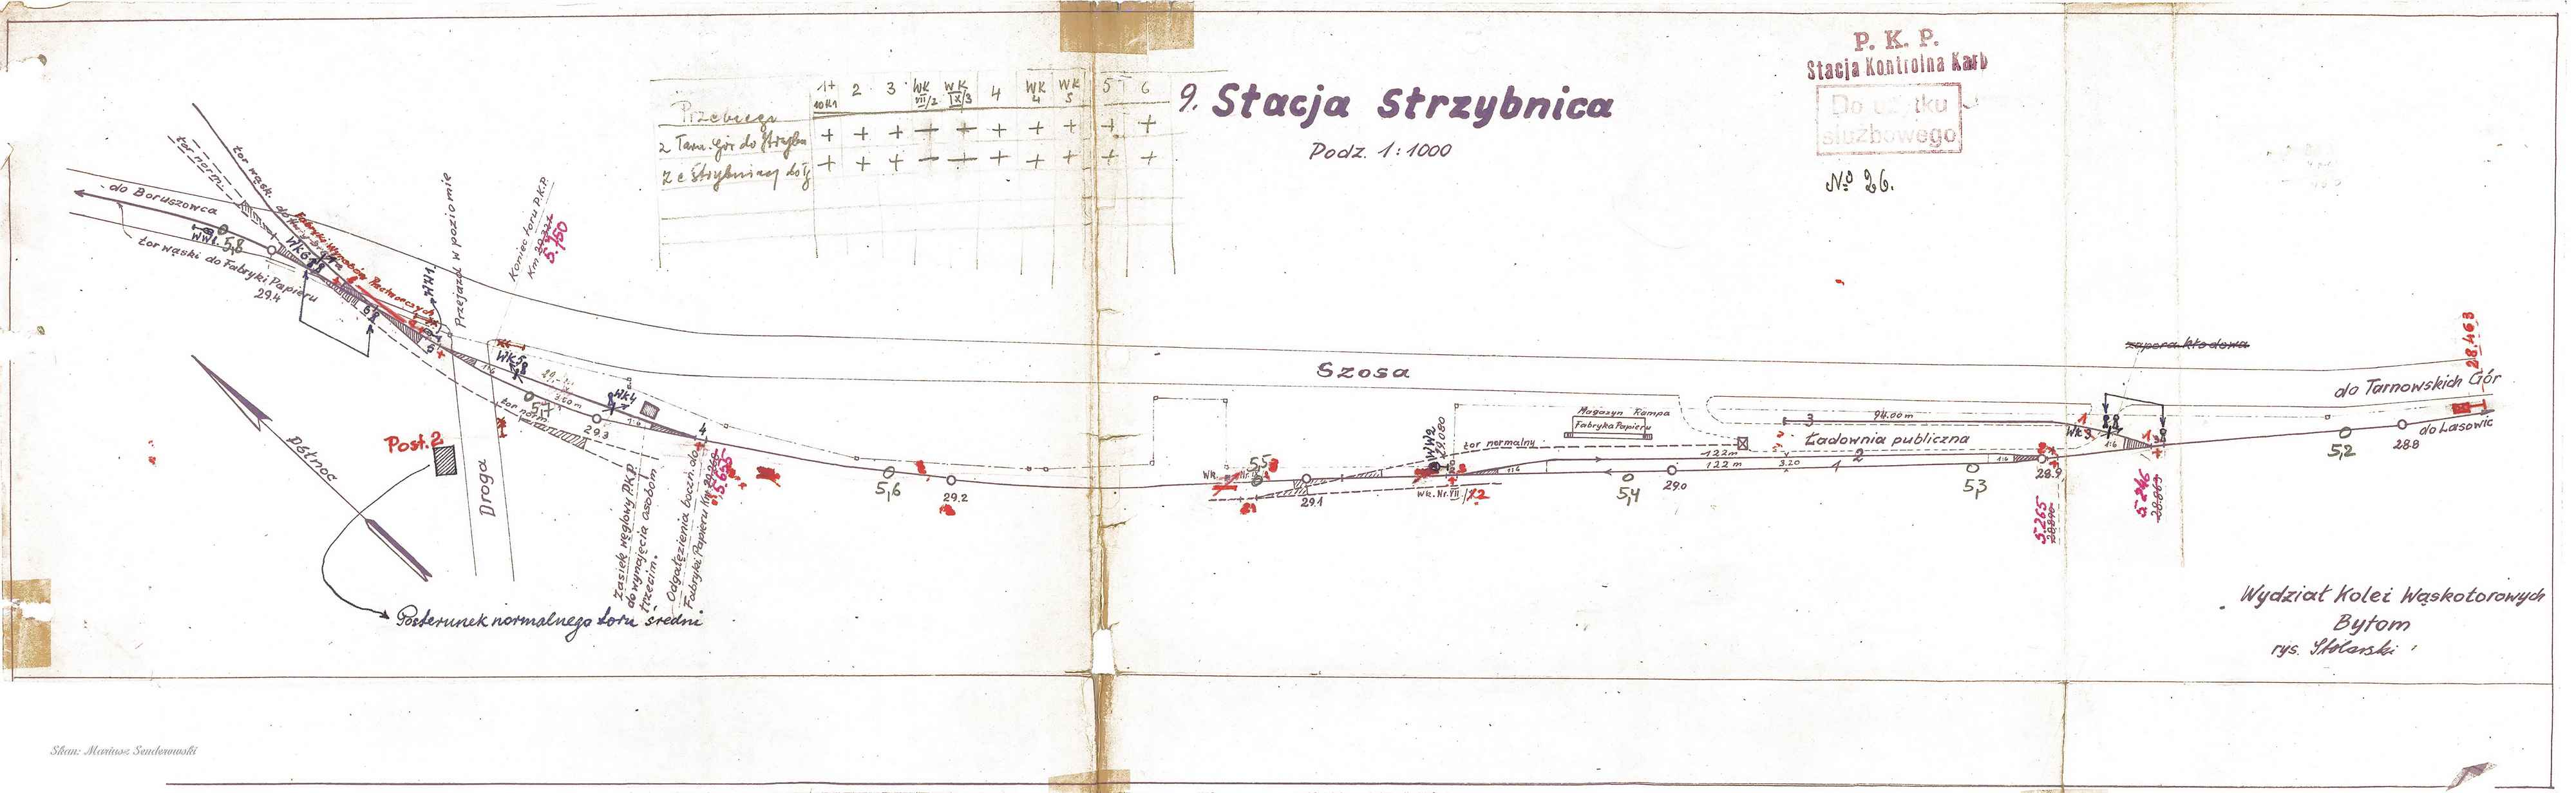 9. Stacja Strzybnica
Podz. 1:1000
P. K. P.
Stacja Kontrolna Karb
Do użytku
służbowego
No 26.
Przebiegi
1+ 2 3 WK VII/2 WK IX/3 4 WK 4 WK 5 5 6
10H1
z Tarn. Gór do Strzybn
+ + + — — + + + + +
+ + + — — + + + + +
tor norm.
tor wąsk.
do Boruszowca
WW1. 5,8
WK6
tor wąski do Fabryki Papieru
29.4
WH1
Przejazd w poziomie
Koniec toru P.K.P.
5.750
6
1:6
WK5
5,7
tor norm
3.50 m
29.3
WK4
4
Post. 2
Północ
Droga
Posterunek normalnego toru średni
Zasiek węglowy PKP
do wynajęcia osobom
trzecim.
Odgałęzienia boczn. do
Fabryki Papieru Km
5.625
5,6
29.2
Szosa
5,5
29.1
WW2
29.080
tor normalny
Wk. Nr. VII/12
1:6
Magazyn Rampa
Fabryka Papieru
5,4
29.0
122m
122m
3.20
3
94.00m
Ładownia publiczna
2
1
5,3
1:6
28.9
5.265
28.890
zapora kłodowa
WK3
1:6
5.246
28.869
28.463
do Tarnowskich Gór
do Lasowic
5,2
28.8
Wydział Kolei Wąskotorowych
Bytom
rys. Stolarski
Skan: Mariusz Senderowski